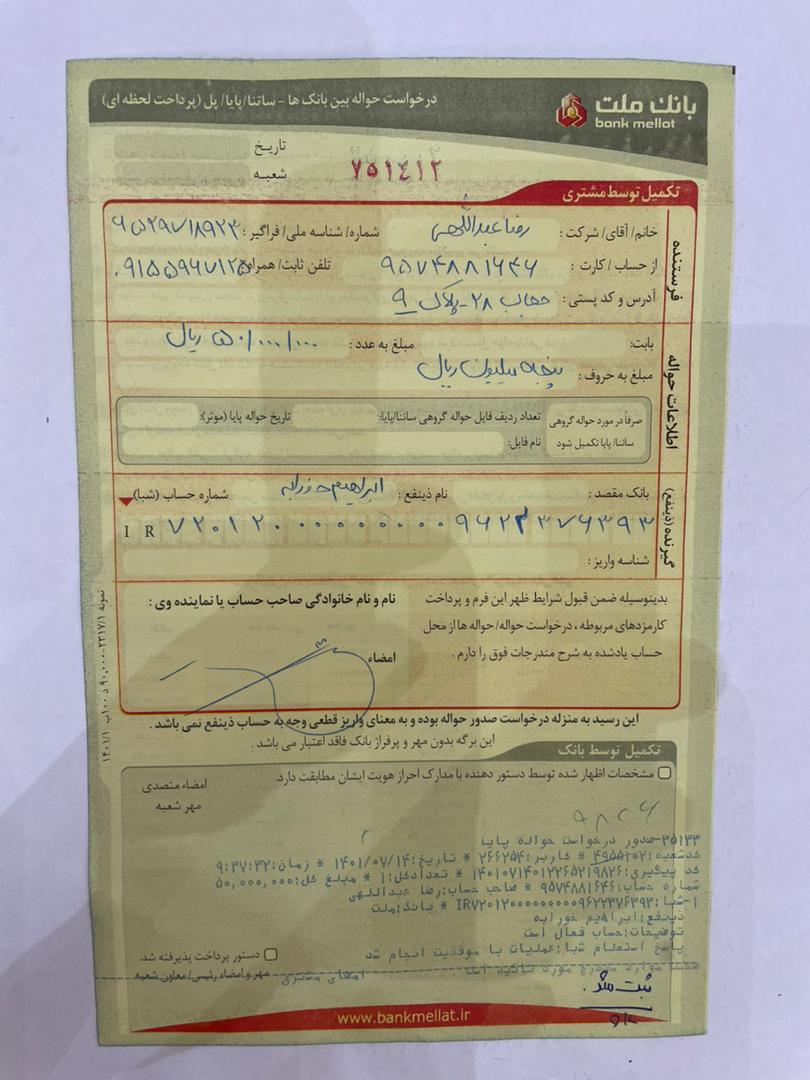 درخواست حواله بین بانک ها - ساتنا/پایا/ پل (پرداخت لحظه ای)
بانک ملت
bank mellat
تاریخ
شعبه
۷۵۱۴۱۲
تکمیل توسط مشتری
فرستنده
خانم/ آقای/ شرکت : رضا عبداللهی شماره/ شناسه ملی/ فراگیر :
از حساب/ کارت : ۹۵۷۴۸۸۱۶۴۶ تلفن ثابت/ همراه:
آدرس و کد پستی : حجاب ۲۸-پلاک ۹
اطلاعات حواله
بابت: مبلغ به عدد : ۵۰/۰۰۰/۰۰۰ ریال
مبلغ به حروف : پنجاه میلیون ریال
صرفاً در مورد حواله گروهی ساتنا/ پایا تکمیل شود
تعداد ردیف فایل حواله گروهی ساتنا/پایا: تاریخ حواله پایا (موثر):
نام فایل:
گیرنده (ذینفع)
بانک مقصد : نام ذینفع : ابراهیم خورابه شماره حساب (شبا)
IR ۷۲۰۱۲۰۰۰۰۰۰۰۰۰۹۶۲۲۳۷۶۳۹۳
شناسه واریز :
بدینوسیله ضمن قبول شرایط ظهر این فرم و پرداخت
کارمزدهای مربوطه ، درخواست حواله/ حواله ها از محل
حساب یادشده به شرح مندرجات فوق را دارم .
نام و نام خانوادگی صاحب حساب یا نماینده وی :
امضاء
این رسید به منزله درخواست صدور حواله بوده و به معنای واریز قطعی وجه به حساب ذینفع نمی باشد .
این برگه بدون مهر و پرفراژ بانک فاقد اعتبار می باشد .
تکمیل توسط بانک
مشخصات اظهار شده توسط دستور دهنده با مدارک احراز هویت ایشان مطابقت دارد.
امضاء متصدی
مهر شعبه
۳۵۱۳۳-صدور درخواست حواله پایا
کدشعبه:۴۹۵۵۱۰۲ * کاربر:۲۶۶۲۵۴ * تاریخ:۱۴۰۱/۰۷/۱۴ * زمان:۹:۳۷:۳۲
کد پیگیری:۱۴۰۱۰۷۱۴۰۱۲۲۶۵۲۱۹۸۲۶ * تعدادکل:۱ * مبلغ کل:۵۰,۰۰۰,۰۰۰
شماره حساب:۹۵۷۴۸۸۱۶۴۶ * صاحب حساب:رضا عبداللهی
۱-شبا:IR۷۲۰۱۲۰۰۰۰۰۰۰۰۰۹۶۲۲۳۷۶۳۹۳ * بانک:ملت
ذینفع:ابراهیم خورابه
توضیحات:حساب فعال است
پاسخ استعلام شبا:عملیات با موفقیت انجام شد
صحت موارد مندرج مورد تائید است امضای مشتری
دستور پرداخت پذیرفته شد.
مهر و امضاء رئیس/ معاون شعبه
ثبت شد.
www.bankmellat.ir